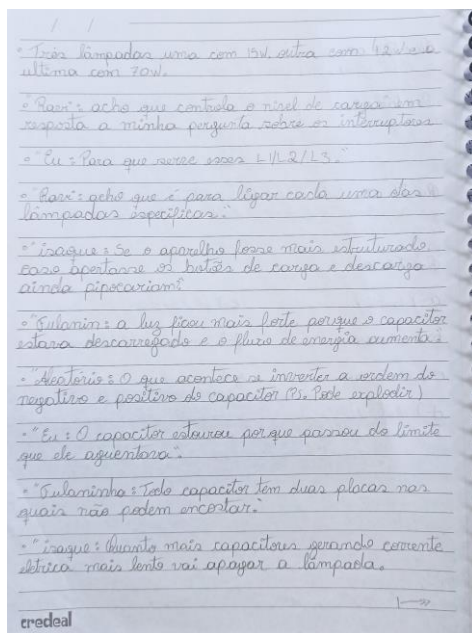 / /
• Três lâmpadas uma com 15W, outra com 42W e a
ultima com 70W.
• "Ravi": acho que controla o nivel de carga" em
resposta a minha pergunta sobre os interruptores
• "Eu: Para que serve esses L1/L2/L3."
• "Ravi: acho que é para ligar cada uma das
lâmpadas especificas."
• "isaque: Se o aparelho fosse mais estruturado
caso apertasse os butões de carga e descarga
ainda pipocariam?
• "Fulanin: a luz ficou mais forte porque o capacitor
estava descarregado e o fluxo de energia aumenta."
• "Aleatório: O que acontece se inverter a ordem do
negativo e positivo do capacitor (Ps. Pode explodir)
• "Eu: O capacitor estourou porque passou do limite
que ele aguentava".
• "Fulaninha: Todo capacitor tem duas placas nas
quais não podem encostar."
• "isaque: Quanto mais capacitores gerando corrente
elétrica mais lento vai apagar a lâmpada.
credeal